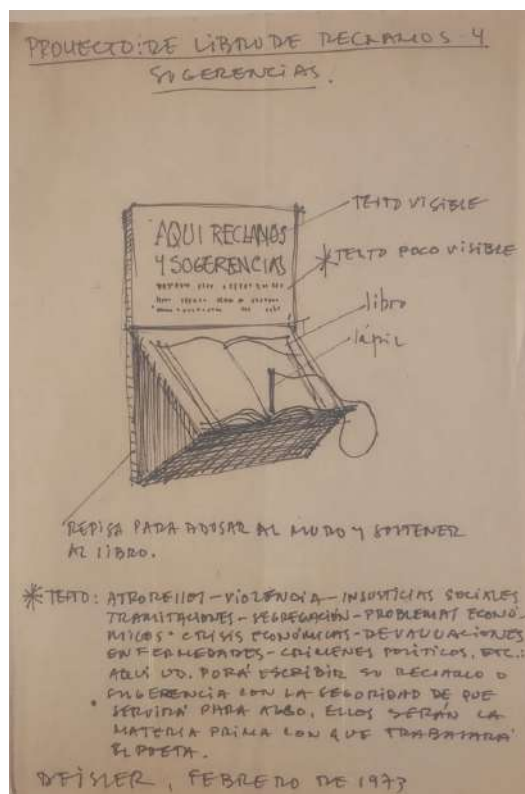 PROYECTO: DE LIBRO DE RECLAMOS Y
SUGERENCIAS.
TEXTO VISIBLE
AQUI RECLAMOS
Y SOGERENCIAS
* TEXTO POCO VISIBLE
libro
lápiz
REPISA PARA ADOSAR AL MURO Y SOSTENER
AL LIBRO.
* TEXTO: ATROPELLOS - VIOLENCIA - INJUSTICIAS SOCIALES
TRAMITACIONES - SEGREGACIÓN - PROBLEMAS ECONÓ-
MICOS - CRISIS ECONÓMICAS - DEVALUACIONES
ENFERMEDADES - CRIMENES POLÍTICOS, ETC.:
AQUI UD. PODRÁ ESCRIBIR SU RECLAMO O
SUGERENCIA CON LA SEGURIDAD DE QUE
SERVIRÁ PARA ALGO. ELLOS SERÁN LA
MATERIA PRIMA CON QUE TRABAJARÁ
EL POETA.
DEISLER, FEBRERO DE 1973